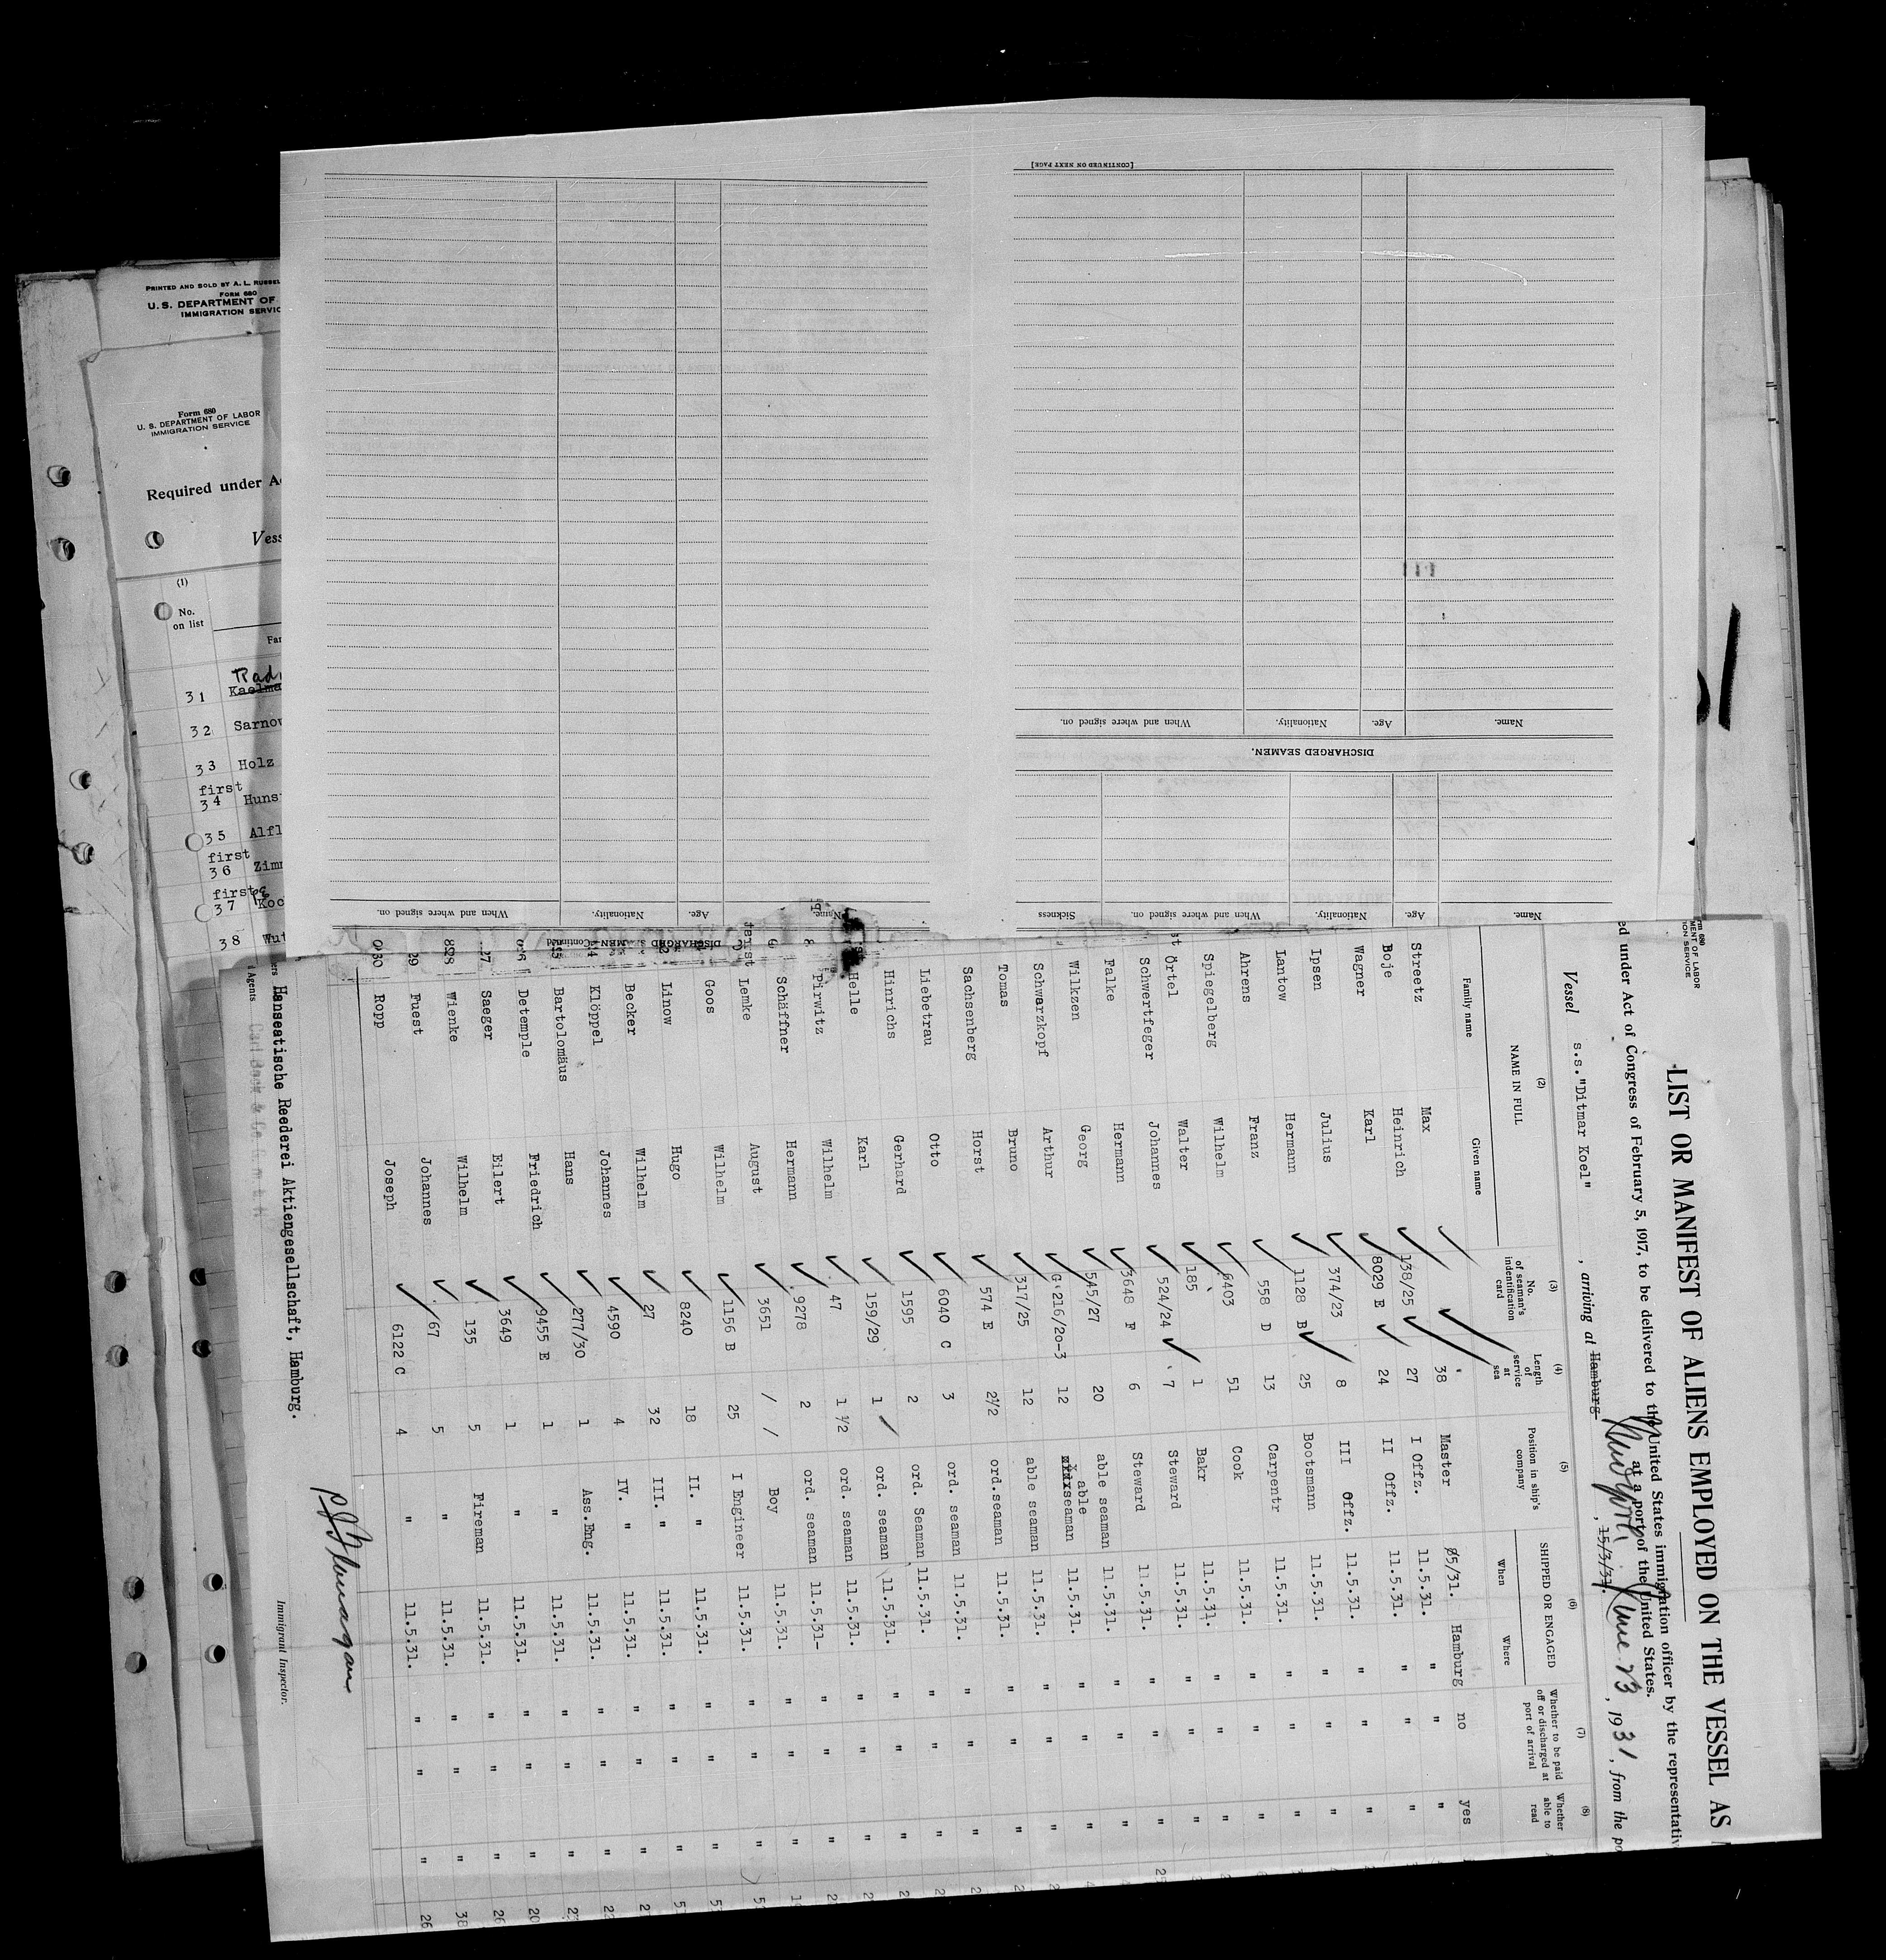 PRINTED AND SOLD BY A. L. RUSSEL
FORM 680
U. S. DEPARTMENT OF
IMMIGRATION SERVIC
Form 680
U. S. DEPARTMENT OF LABOR
IMMIGRATION SERVICE
Required under A
Vess
(1)
No.
on list
Fa
31 Kaelma
32 Sarnov
33 Holz
first
34 Huns
35 Alfl
first
36 Zim
first
37 Koc
38 Wut
[CONTINUED ON NEXT PAGE]
Name. Age. Nationality. When and where signed on.
DISCHARGED SEAMEN.
Name. Age. Nationality. When and where signed on. Sickness
Name. Age. Nationality. When and where signed on.
DISCHARGED SEAMEN Continued
MENT OF LABOR
ION SERVICE
LIST OR MANIFEST OF ALIENS EMPLOYED ON THE VESSEL AS
ed under Act of Congress of February 5, 1917, to be delivered to the United States immigration officer by the representativ
at a port of the United States.
Vessel s.s."Ditmar Koel" , arriving at Hamburg , 15/3/31. June 23, 1931, from the po
(2) (3) (4) (5) (6) (7) (8)
NAME IN FULL
Family name Given name
No. of seaman's indentification card
Length of service at sea
Position in ship's company
SHIPPED OR ENGAGED
When Where
Whether to be paid off or discharged at port of arrival
Whether able to read
Streetz Max 38 Master ø5/31. Hamburg no yes
Boje Heinrich 138/25 27 I Offz. 11.5.31. " " "
Wagner Karl 8029 E 24 II Offz. 11.5.31. " " "
Ipsen Julius 374/23 8 III Offz. 11.5.31. " " "
Lantow Hermann 1128 B 25 Bootsmann 11.5.31. " " "
Ahrens Franz 558 D 13 Carpentr 11.5.31. " " "
Spiegelberg Wilhelm 6403 51 Cook 11.5.31. " " "
Örtel Walter 185 1 Bakr 11.5.31. " " "
Schwertfeger Johannes 524/24 7 Steward 11.5.31. " " "
Falke Hermann 3648 F 6 Steward 11.5.31. " " "
Wilkzen Georg 545/27 20 able seaman 11.5.31. " " "
Schwarzkopf Arthur G 216/20-3 12 able seaman 11.5.31. " " "
Tomas Bruno 317/25 12 able seaman 11.5.31. " " "
Sachsenberg Horst 574 E 2½ ord.seaman 11.5.31. " " "
Liebetrau Otto 6040 C 3 ord. seaman 11.5.31. " " "
Hinrichs Gerhard 1595 2 ord. Seaman 11.5.31. " " "
Helle Karl 159/29 1 ord. seaman 11.5.31. " " "
Pirwitz Wilhelm 47 1 1/2 ord. seaman 11.5.31. " " "
Schäffner Hermann 9278 2 ord. seaman 11.5.31- " " "
Lemke August 3651 / / Boy 11.5.31. " " "
Goos Wilhelm 1156 B 25 I Engineer 11.5.31. " " "
Linow Hugo 8240 18 II. " 11.5.31. " " "
Becker Wilhelm 27 32 III. " 11.5.31. " " "
Klöppel Johannes 4590 4 IV. " 11.5.31. " " "
Bartolomäus Hans 277/30 1 Ass.Eng. 11.5.31. " " "
Detemple Friedrich 9455 E 1 " 11.5.31. " " "
Saeger Eilert 3649 1 " 11.5.31. " " " 26
Wienke Wilhelm 135 5 Fireman 11.5.31. " " " 26
29 Fuest Johannes 67 5 " 11.5.31. " " " 38
30 Ropp Joseph 6122 C 4 " 11.5.31. " " " 26
Hanseatische Reederei Aktiengesellschaft, Hamburg.
Agents
Immigrant Inspector.